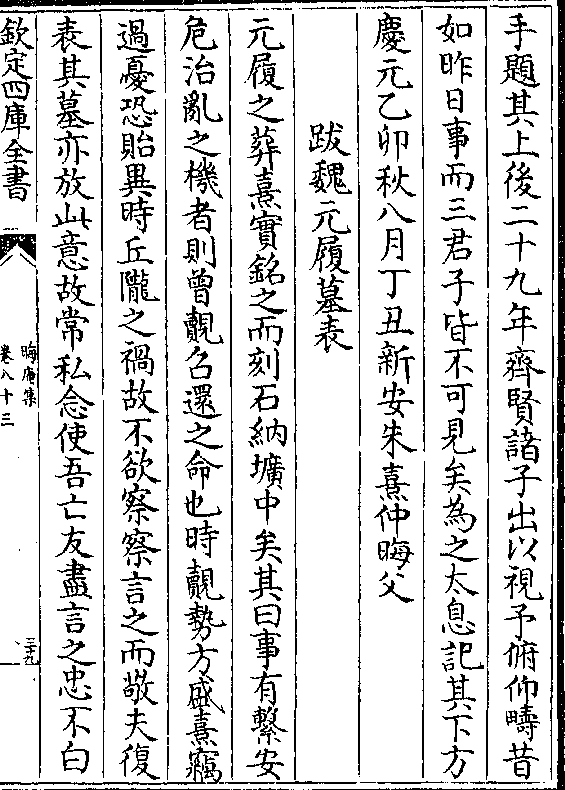 手題其上後二十九年齊賢諸子出以視予俯仰疇昔
如昨日事而三君子皆不可見矣為之太息記其下方
慶元乙卯秋八月丁丑新安朱熹仲晦父
跋魏元履墓表
元履之葬熹實銘之而刻石納壙中矣其曰事有繫安
危治亂之機者則曾覿召還之命也時覿勢方盛熹竊
過憂恐貽異時丘隴之禍故不欲察察言之而敬夫復
表其墓亦放此意故常私念使吾亡友盡言之忠不白
欽定四庫全書
晦庵集
卷八十三
三十九